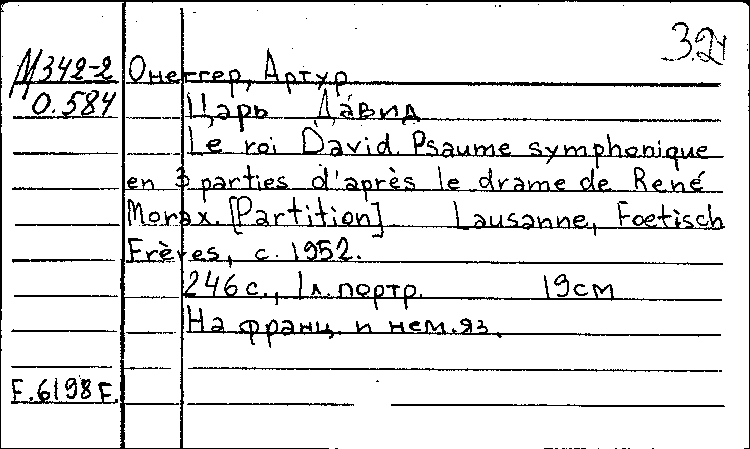 3.24
М342-2 Онеггер, Артур
О.584 Царь Давид
Le roi David. Psaume symphonique
en 3 parties d'après le drame de René
Morax. [Partition] Lausanne, Foetisch
Frères, c. 1952.
246 с., 1 л. портр. 19 см
На франц. и нем. яз.
F.6198 E.